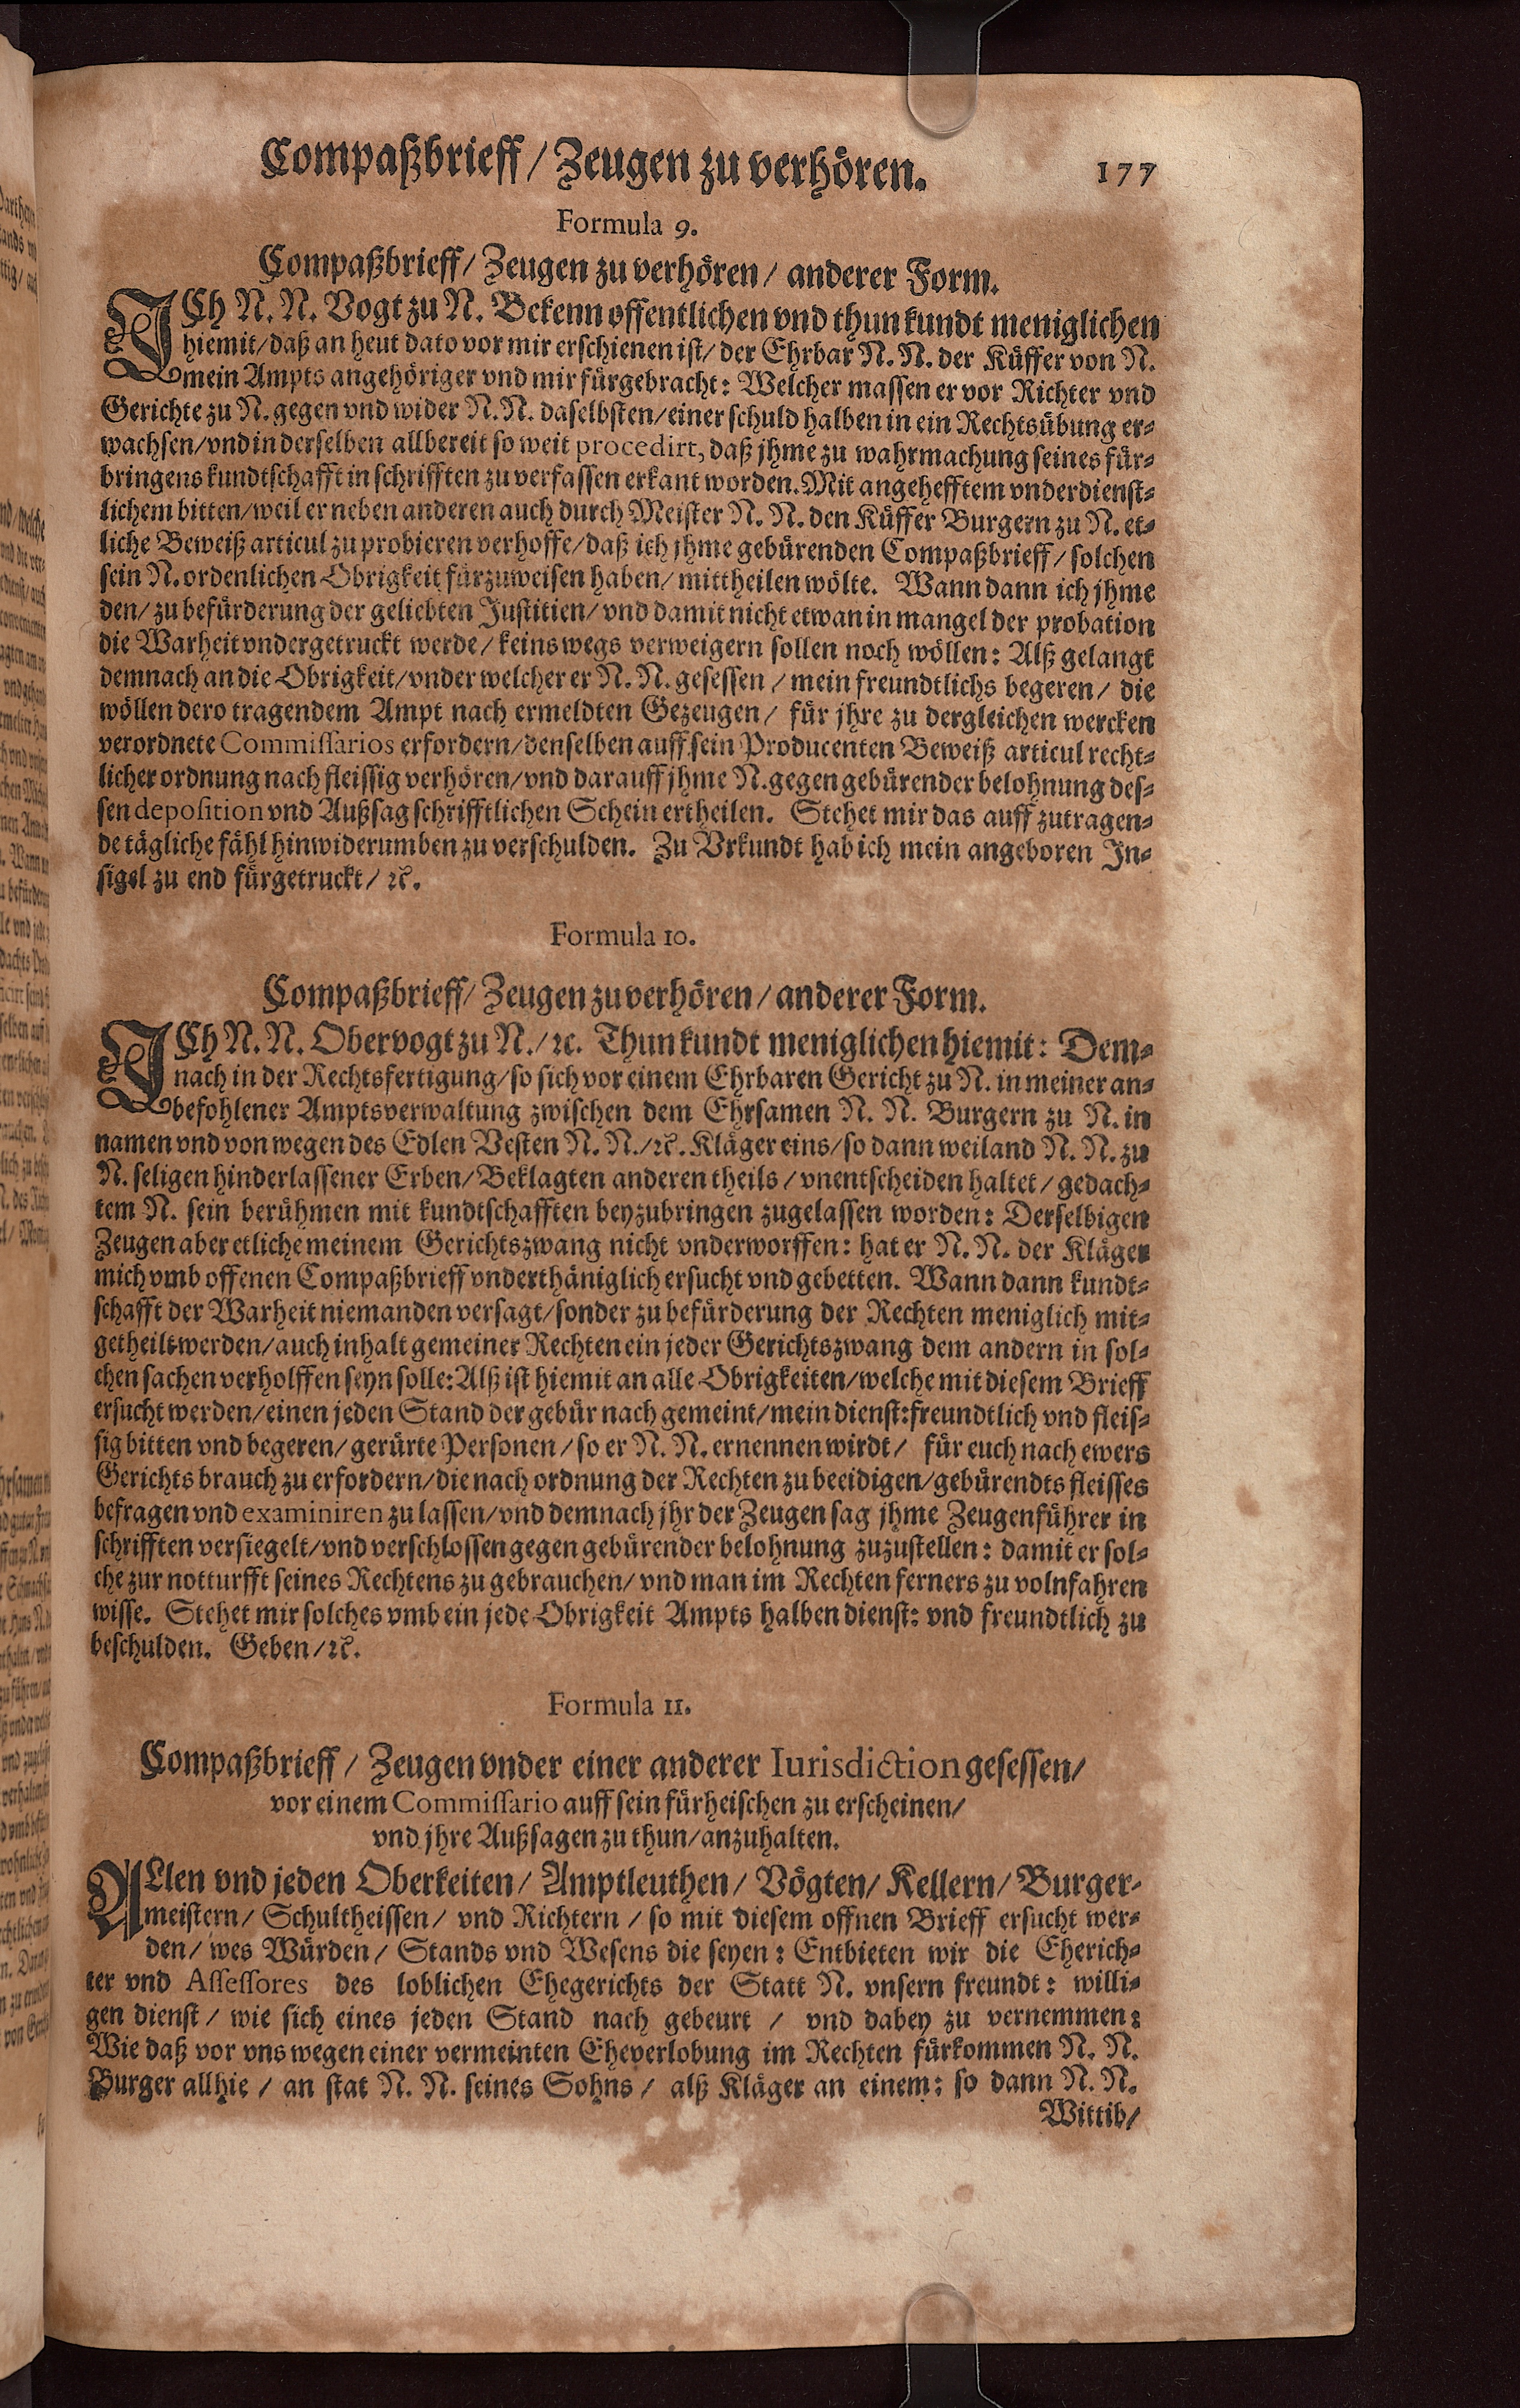 Compaßbrieff/ Zeugen zu verhören. 177
Formula 9.
Compaßbrieff/ Zeugen zu verhören/ anderer Form.
ICh N. N. Vogt zu N. Bekenn offentlichen vnd thun kundt meniglichen
hiemit/ daß an heut dato vor mir erschienen ist/ der Ehrbar N. N. der Küffer von N.
mein Ampts angehöriger vnd mir fürgebracht: Welcher massen er vor Richter vnd
Gerichte zu N. gegen vnd wider N. N. daselbsten/ einer schuld halben in ein Rechtsübung er-
wachsen/ vnd in derselben allbereit so weit procedirt, daß jhme zu wahrmachung seines für-
bringens kundtschafft in schrifften zu verfassen erkant worden. Mit angehefftem vnderdienst-
lichem bitten/ weil er neben anderen auch durch Meister N. N. den Küffer Burgern zu N. et-
liche Beweiß articul zu probieren verhoffe/ daß ich jhme gebürenden Compaßbrieff/ solchen
sein N. ordenlichen Obrigkeit fürzuweisen haben/ mittheilen wölte. Wann dann ich jhme
den/ zu befürderung der geliebten Justitien/ vnd damit nicht etwan in mangel der probation
die Warheit vndergetruckt werde/ keins wegs verweigern sollen noch wöllen: Alß gelangt
demnach an die Obrigkeit/ vnder welcher er N. N. gesessen/ mein freundtlichs begeren/ die
wöllen dero tragendem Ampt nach ermeldten Gezeugen/ für jhre zu dergleichen wercken
verordnete Commissarios erfordern/ denselben auff sein Producenten Beweiß articul recht-
licher ordnung nach fleissig verhören/ vnd darauff jhme N. gegen gebürender belohnung des-
sen deposition vnd Außsag schrifftlichen Schein ertheilen. Stehet mir das auff zutragen-
de tägliche fähl hinwiderumben zu verschulden. Zu Vrkundt hab ich mein angeboren In-
sigel zu end fürgetruckt/ ꝛc.
Formula 10.
Compaßbrieff/ Zeugen zu verhören/ anderer Form.
ICh N. N. Obervogt zu N./ ꝛc. Thun kundt meniglichen hiemit: Dem-
nach in der Rechtsfertigung/ so sich vor einem Ehrbaren Gericht zu N. in meiner an-
befohlener Amptsverwaltung zwischen dem Ehrsamen N. N. Burgern zu N. in
namen vnd von wegen des Edlen Vesten N. N./ ꝛc. Kläger eins/ so dann weiland N. N. zu
N. seligen hinderlassener Erben/ Beklagten anderen theils/ vnentscheiden haltet/ gedach-
tem N. sein berühmen mit kundtschafften beyzubringen zugelassen worden: Derselbigen
Zeugen aber etliche meinem Gerichtszwang nicht vnderworffen: hat er N. N. der Kläger
mich vmb offenen Compaßbrieff vnderthäniglich ersucht vnd gebetten. Wann dann kundt-
schafft der Warheit niemanden versagt/ sonder zu befürderung der Rechten meniglich mit-
getheilt werden/ auch inhalt gemeiner Rechten ein jeder Gerichtszwang dem andern in sol-
chen sachen verholffen seyn solle: Alß ist hiemit an alle Obrigkeiten/ welche mit diesem Brieff
ersucht werden/ einen jeden Stand der gebür nach gemeint/ mein dienst: freundtlich vnd fleis-
sig bitten vnd begeren/ gerürte Personen/ so er N. N. ernennen wirdt/ für euch nach ewers
Gerichts brauch zu erfordern/ die nach ordnung der Rechten zu beeidigen/ gebürendts fleisses
befragen vnd examiniren zu lassen/ vnd demnach jhr der Zeugen sag jhme Zeugenführer in
schrifften versiegelt/ vnd verschlossen gegen gebürender belohnung zuzustellen: damit er sol-
che zur notturfft seines Rechtens zu gebrauchen/ vnd man im Rechten ferners zu volnfahren
wisse. Stehet mir solches vmb ein jede Obrigkeit Ampts halben dienst: vnd freundtlich zu
beschulden. Geben/ ꝛc.
Formula 11.
Compaßbrieff/ Zeugen vnder einer anderer Iurisdiction gesessen/
vor einem Commissario auff sein fürheischen zu erscheinen/
vnd jhre Außsagen zu thun/ anzuhalten.
ALlen vnd jeden Oberkeiten/ Amptleuthen/ Vögten/ Kellern/ Burger-
meistern/ Schultheissen/ vnd Richtern/ so mit diesem offnen Brieff ersucht wer-
den/ wes Würden/ Stands vnd Wesens die seyen: Entbieten wir die Eherich-
ter vnd Assessores des loblichen Ehegerichts der Statt N. vnsern freundt: willi-
gen dienst/ wie sich eines jeden Stand nach gebeurt/ vnd dabey zu vernemmen:
Wie daß vor vns wegen einer vermeinten Eheverlobung im Rechten fürkommen N. N.
Burger allhie/ an stat N. N. seines Sohns/ alß Kläger an einem: so dann N. N.
Wittib/